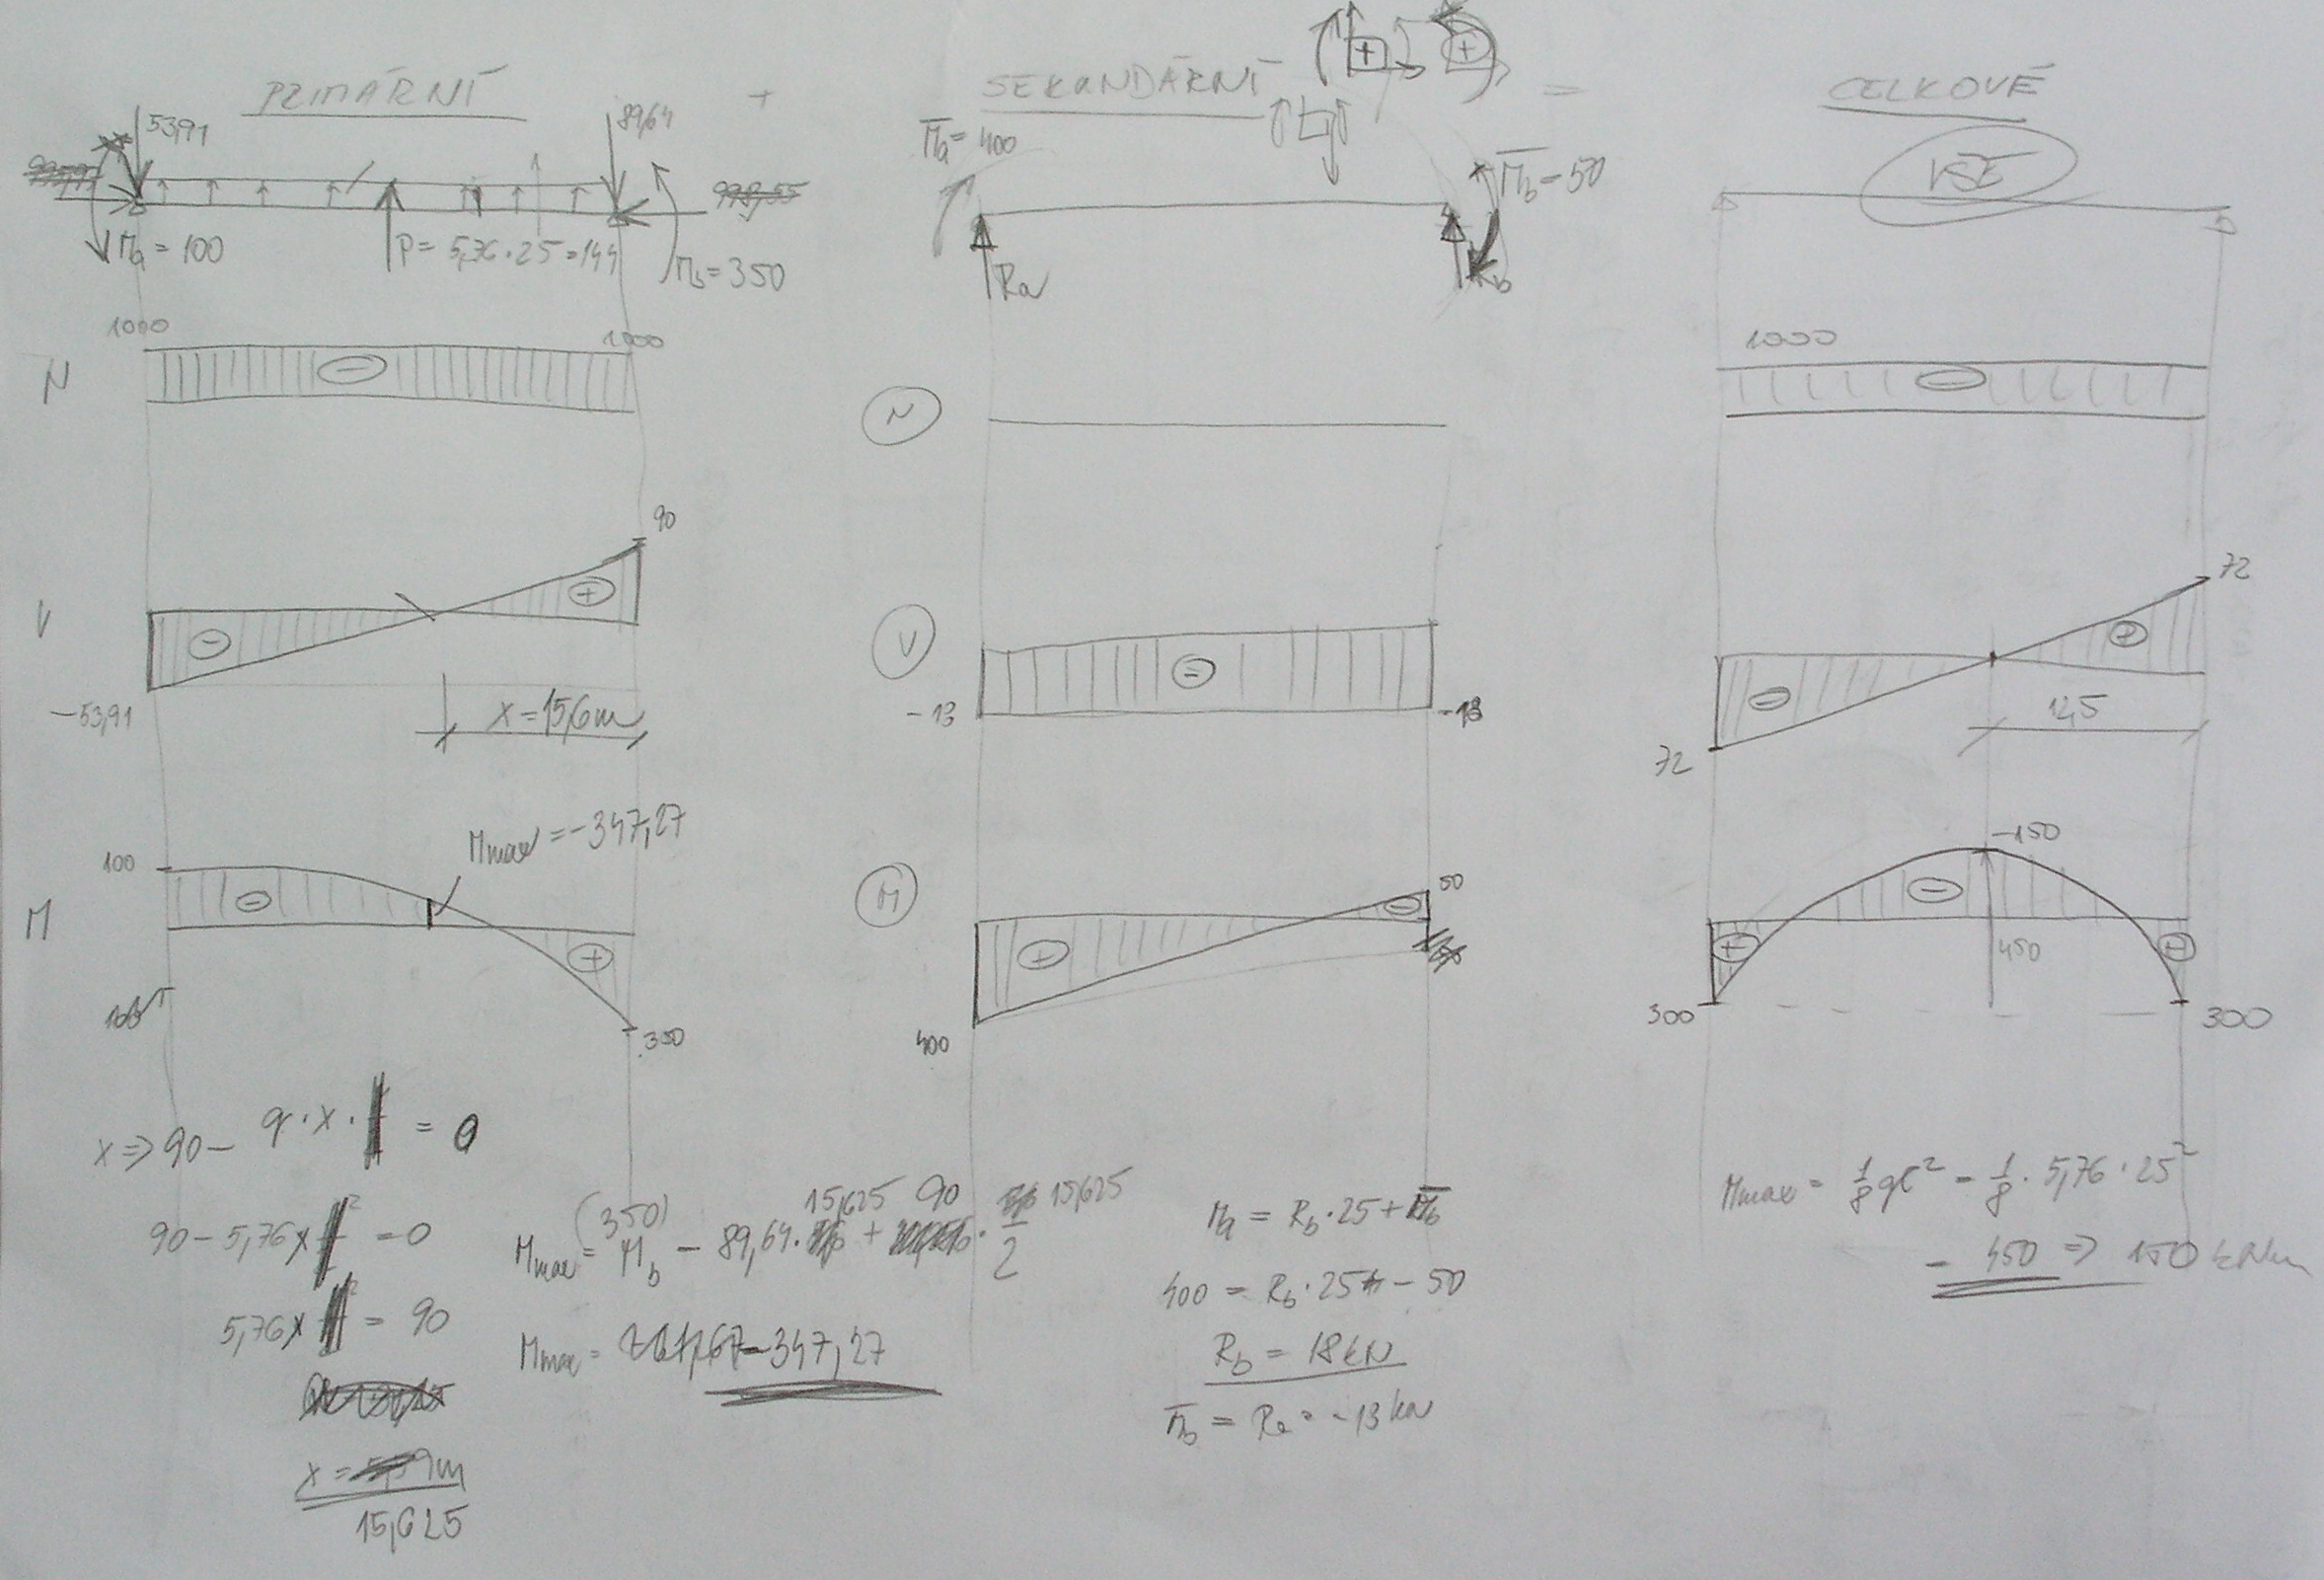 PRIMÁRNÍ + SEKUNDÁRNÍ = CELKOVÉ
53,91
89,64
Ma = 100
P = 5,76 · 25 = 144
Mb = 350
M̄a = 400
M̄b = 50
Ra
Rb
VŠE
+
+
N
1000
1000
−
N
1000
−
V
90
−
+
−53,91
x = 15,6m
V
−
−13
−13
72
−
+
12,5
72
M
Mmax = −347,27
100
−
+
350
M
50
+
−
400
−150
−
+
+
450
300
300
x ⇒ 90 − q · x · = 0
90 − 5,76x = 0
5,76x = 90
x =
15,625
(350)
15,625 90 15,625
Mmax = Mb − 89,64 · + · 2
Mmax = −347,27
Ma = Rb · 25 + M̄b
400 = Rb · 25 − 50
Rb = 18 kN
M̄b = Ra = −13 kN
Mmax = 1/8 ql² = 1/8 · 5,76 · 25²
= 450 ⇒ 150 kNm